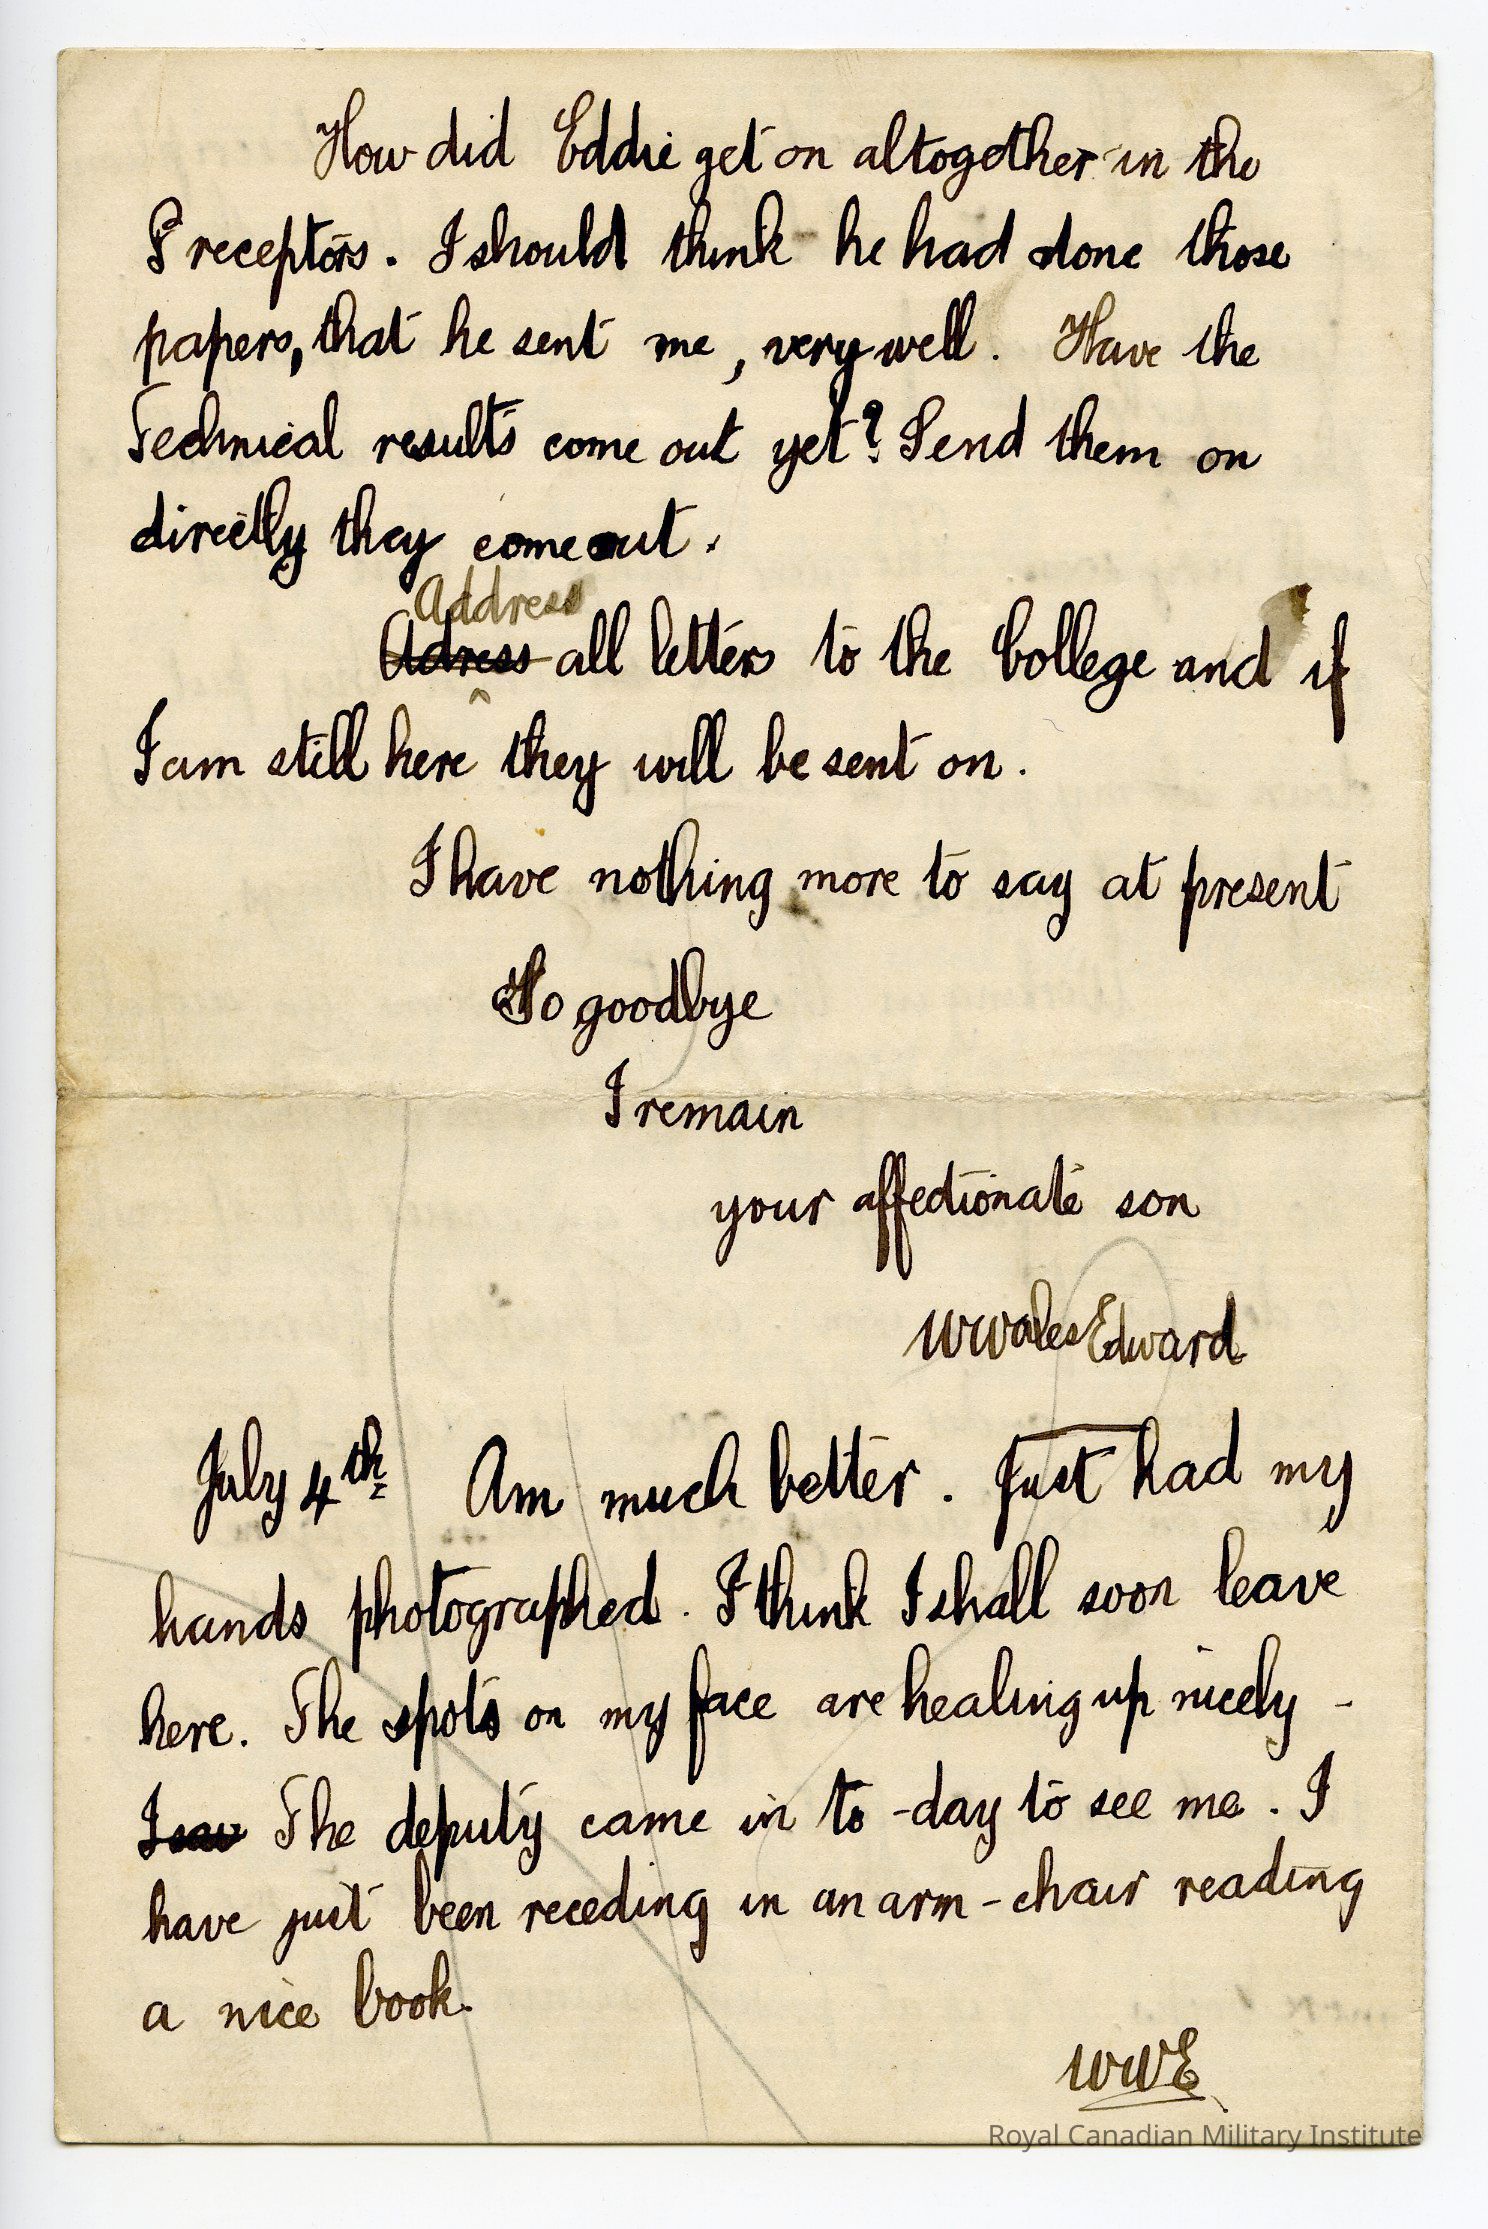 How did Eddie get on altogether in the
Preceptors. I should think he had done those
papers, that he sent me, very well. Have the
Technical results come out yet? Send them on
directly they come out.
Address
Adress all letters to the College and if
I am still here they will be sent on.
I have nothing more to say at present
So goodbye
I remain
your affectionate son
W Wales Edward
July 4th Am much better. Just had my
hands photographed. I think I shall soon leave
here. The spots on my face are healing up nicely -
I saw The deputy came in to-day to see me. I
have just been receding in an arm-chair reading
a nice book.
WWE
Royal Canadian Military Institute